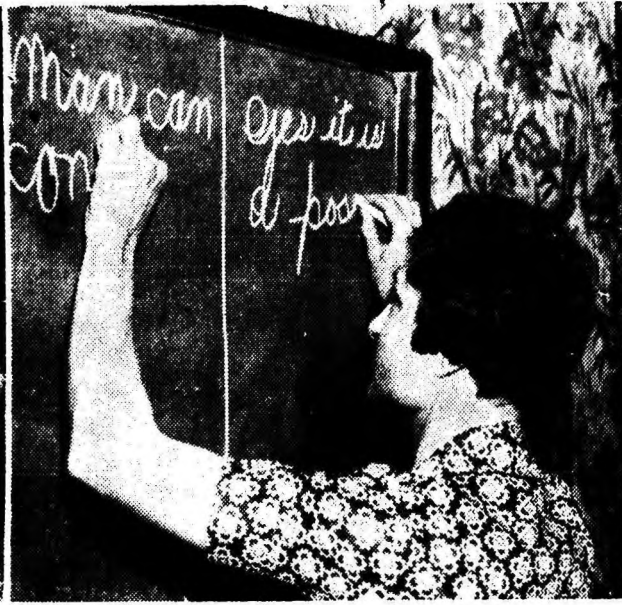 Man can
con
eyes it is
a pos